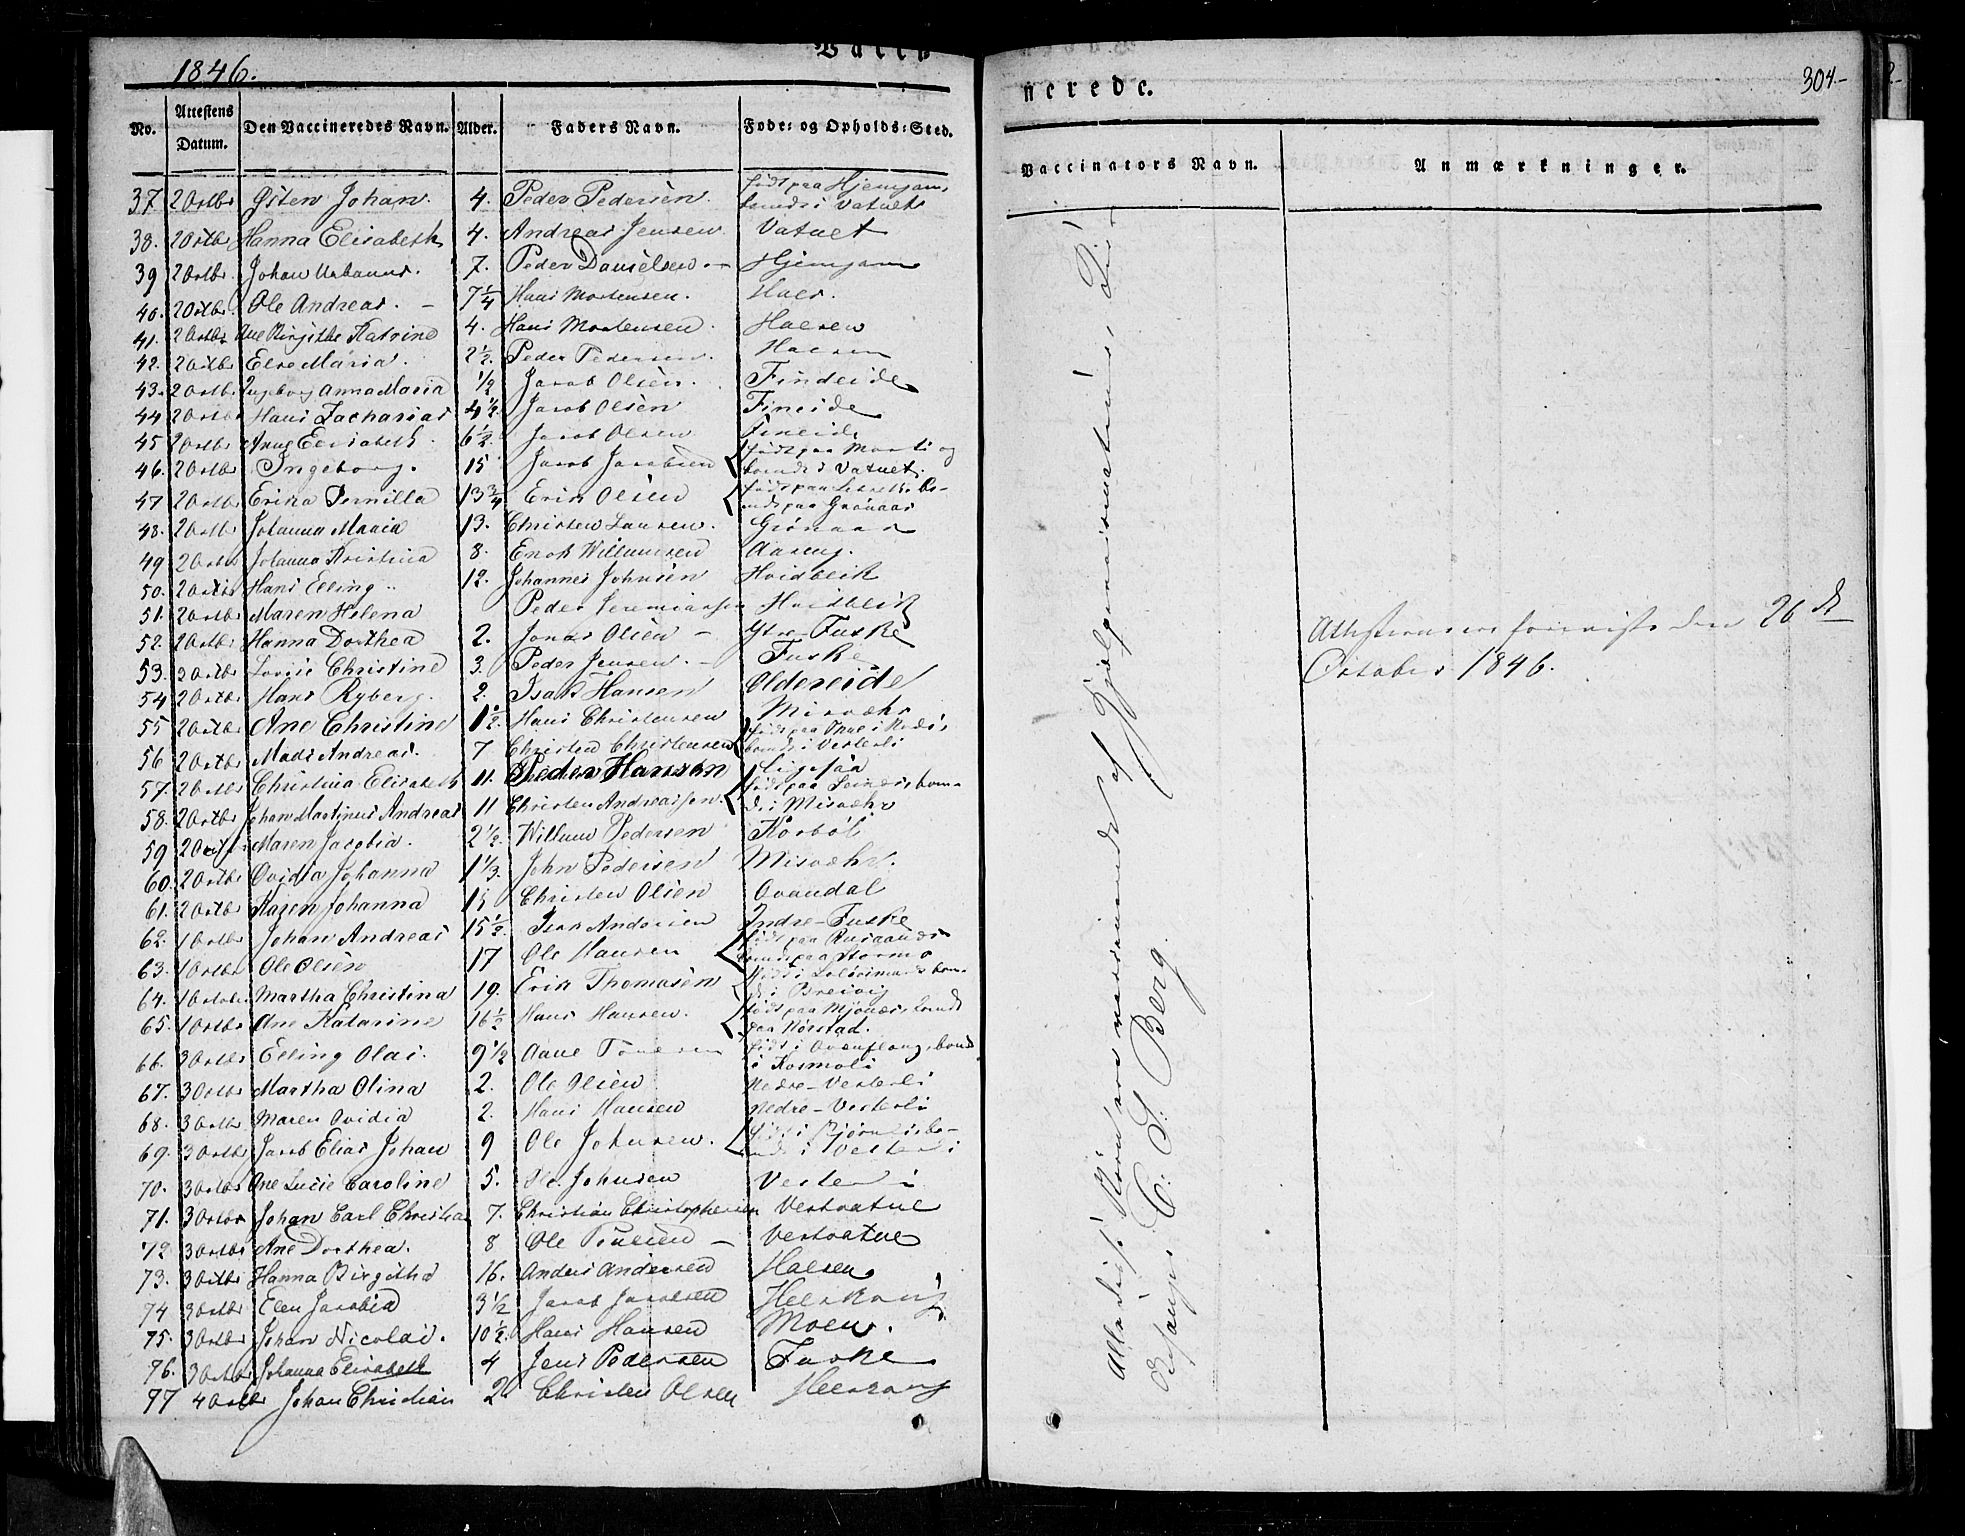 1846.
Vacci
No. Attestens Datum. Den Vaccineredes Navn. Alder. Faders Navn. Føde- og Opholds-Sted.
37 2 Octbr Østen Johan. 4. Peder Pedersen. født paa Hjemgam,
boende i Vatnet
38. 2 Octbr Hanna Elisabeth 4. Andreas Jensen Vatnet
39 2 Octbr. Johan Urbanus. 7. Peder Danielsen - Hjemgam
40. 2 Octbr Ole Andreas. - 7 1/4 Hans Mortensen.
41. 2 Octbr Ane Birgithe Katrine 4. Hans Mortensen. Halsen
42. 2 Octbr Else Maria. 2 1/2. Peder Pedersen. Halsen
43. 2 Octbr Ingeborg Anna Maria 1/2 Jacob Olsen. Findeide
44 2 Octbr Hans Zacharias 4 1/2. Jacob Olsen Fineide
45 2 Octbr Anne Elisabeth. 6 1/2. Jacob Olsen Fineide
46. 2 Octbr Ingeborg. 15 Jacob Jacobsen født paa og
boende i Vatnet.
47 2 Octbr Erika Pernilla 13 3/4 Erik Olsen født paa bo-
ende paa Grønaas
48. 2 Octbr Johanna Maria 13. Christen Larsen. Grønaas
49 2 Octbr Johanna Kristina 8. Enok Willumsen Aaseng.
50. 2 Octbr Hans Elling .. 12. Johannes Johnsen Hvidblik
51. 2 Octbr Maren Helena Peder Jeremiassen Hvidblik
52. 2 Octbr Hanna Dorthea 2. Jonas Olsen - Ytre-Fuske
53. 3 Octbr Lovise Christine 3. Peder Jensen. - Fuske
54 2 Octbr Hans Ryberg. 2. Isak Hansen Oldereide
55 2 Octbr Ane Christine 1 1/2. Hans Christensen Misvæhr
56 2 Octbr Mads Andreas. 7 Christen Christensen født paa
boende i Vesterli
57. 2 Octbr Christina Elisabeth 11. Peder Hansen Ligesaa
58. 2 Octbr Johan Martinus Andreas 11 Christen Andreassen. født paa boen-
de i Misvæhr
59 2 Octbr Maren Jacobia. 2 1/2. Willum Pedersen Kosbøl
60. 2 Octbr Ovidia Johanna 1 1/3. John Pedersen Misvæhr.
61. 2 Octbr Karen Johanna Christen Olsen Ovandal
62. 1 Octbr Johan Andreas 15 1/2. Isak Andersen Indre-Fuske
63. 1 Octbr Ole Olsen 17 Ole Hansen født paa
boende paa Stormo
64. 1 Octbr Martha Christina 19. Erik Thomasen født i boen-
de i Breivig
65. 1 Octbr Ane Katarine 16 1/2 Hans Hansen. født paa Mjønæs, boende
paa Kørstad.
66. 3 Octbr Elling Olai. 9 1/2 født i boende
i Kosmoli
67. 3 Octbr Martha Olina 2. Ole Olsen Nedre-Vesterli
68. 3 Octbr Maren Ovidia 2. Hans Hansen Nedre-Vesterli
69. 3 Octbr Jacob Elias Johan 9 Ole Johnsen. født i bo-
ende i Vesterli
70. 3 Octbr Ane Lucie Caroline 5. Ole Johnsen Vesterli
71. 3 Octbr Johan Carl Christian 7. Christian Christophersen Vestvatne
72 3 Octbr Ane Dorthea. 8 Ole - Vestvatne
73. 3 Octbr Hanna Birgitha 16. Anders Andersen Halsen
74 3 Octbr Elen Jacobia 3 1/2 Jacob Jacobsen Heskang
75. 3 Octbr Johan Nicolai. 10 1/2. Hans Hansen Moen.
76. 3 Octbr Johanna Elisabeth 4 Jens Pedersen Fuske
77 4 Octbr Johan Christian 2 Christen Olsen Heskang
nerede. 304-
Vaccinators Navn. Anmærkninger.
Alle disse Børn ere vaccinerede af Hjelpevaccinateur
C. S. Berg
Attesterne ere foreviste den 26 de
October 1846.